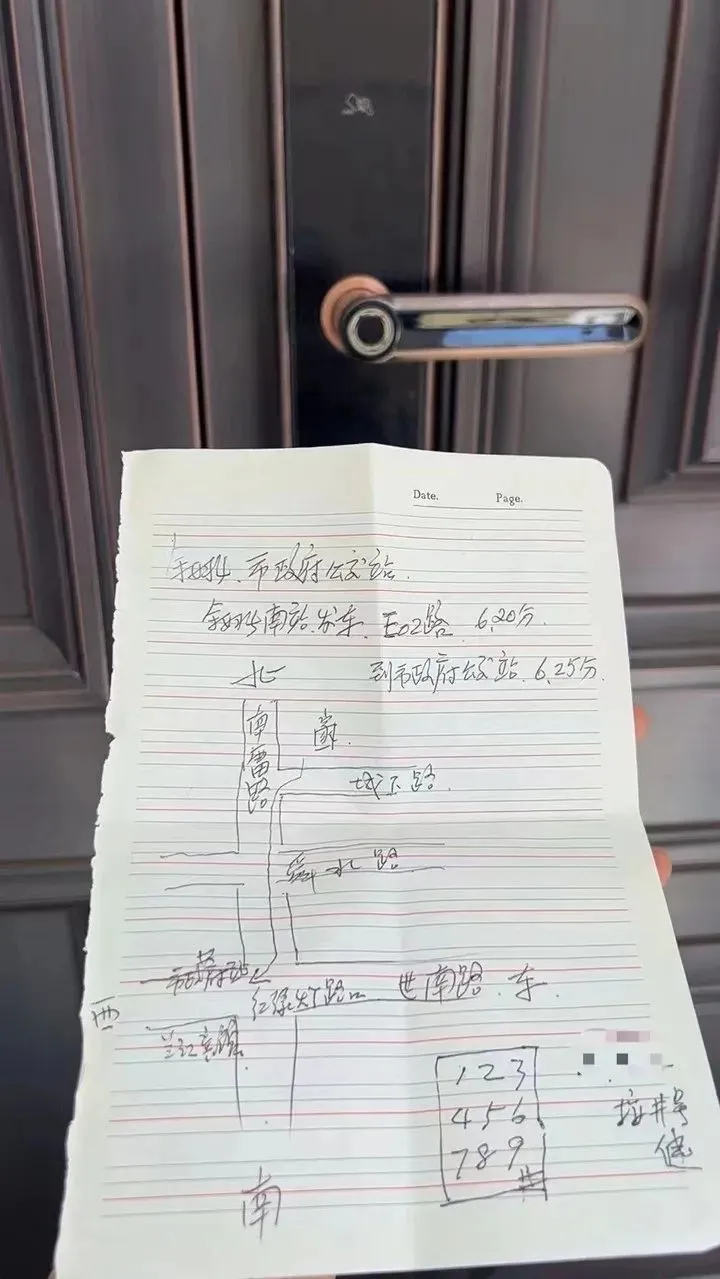 Date. Page.
市政府公交站.
南站.发车. E02路 6,20分.
北 到市政府公交站. 6.25分.
南雷路
路
舜水路
市政府站
红绿灯路口 世南路.东.
西
1 2 3
4 5 6
7 8 9
#
按井号
键
南